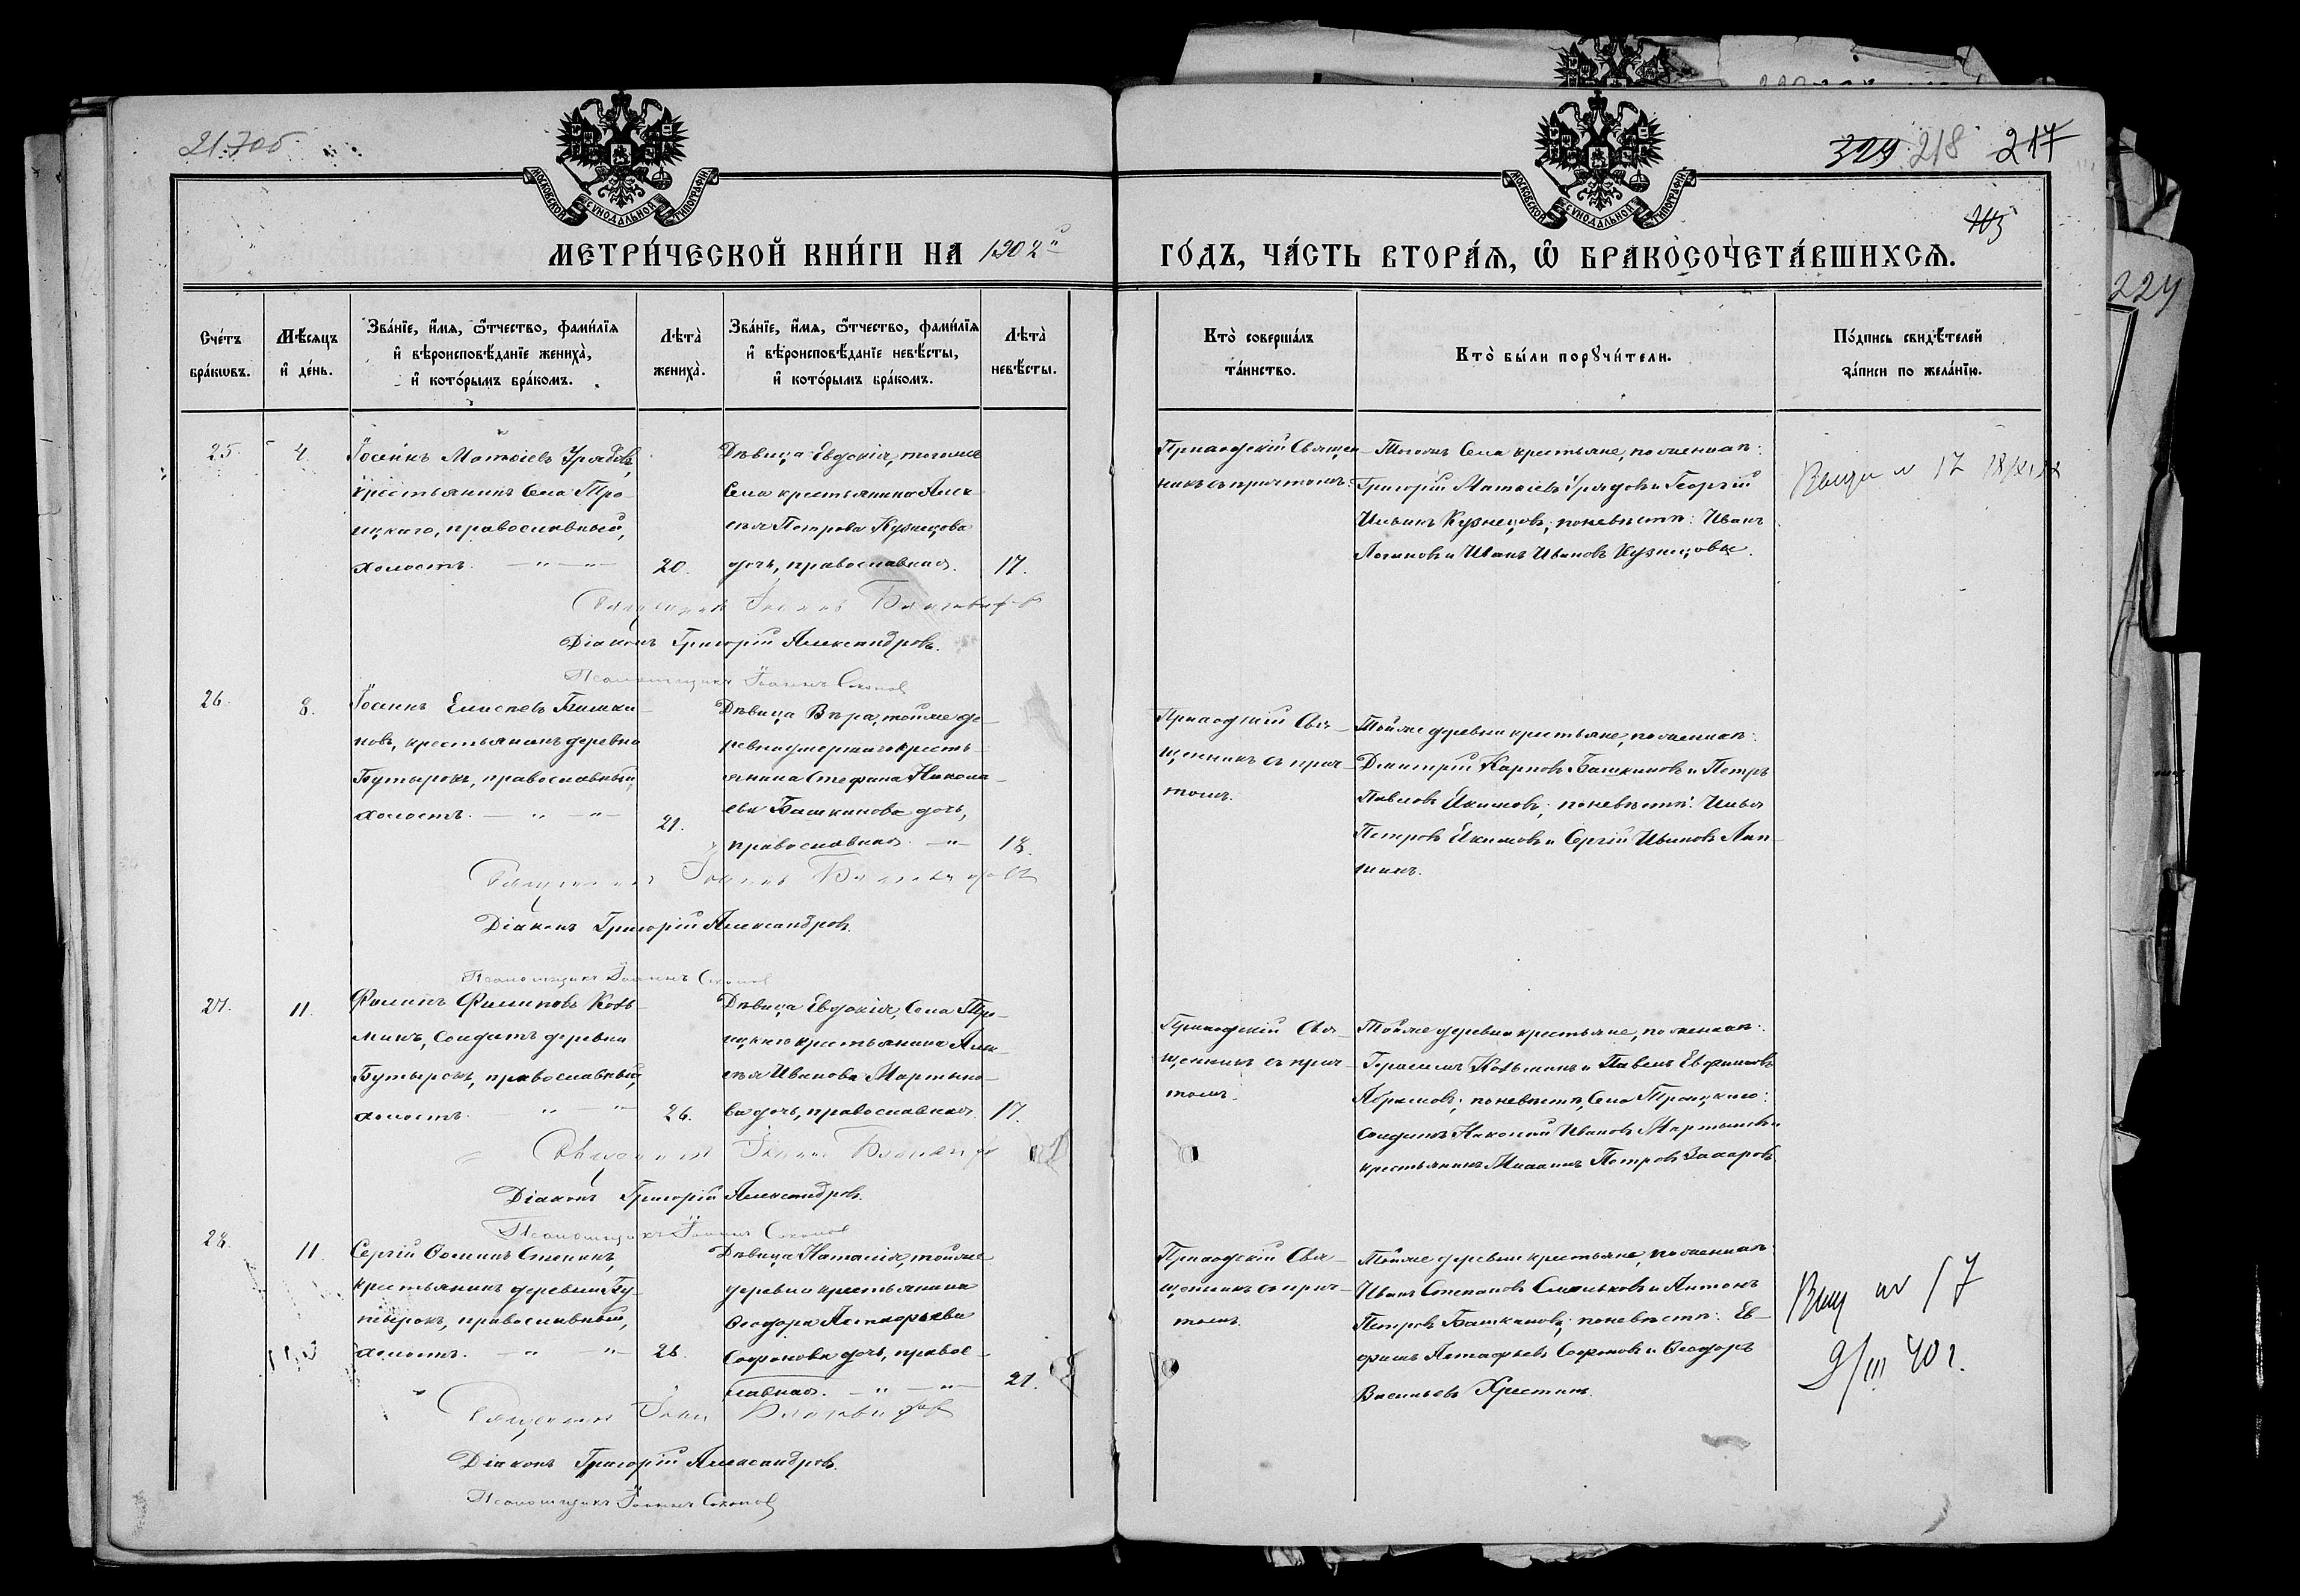 217об
329 218 217
МОСКОВСКОЙ СѴНОДАЛЬНОЙ ТИПОГРАФІИ
МОСКОВСКОЙ СѴНОДАЛЬНОЙ ТИПОГРАФІИ
МЕТРИ́ЧЕСКОЙ КНИ́ГИ НА 1902й ГО́ДЪ, ЧА́СТЬ ВТОРА́Ѧ, Ѡ҆ БРАКОСОЧЕТА́ВШИХСѦ.
224
Сче́тъ бра́кѡвъ.
Мѣ́сѧцъ и҆ де́нь.
Зва́нїе, и҆́мѧ, ѻ҆́тчество, фами́лїѧ
и҆ вѣроисповѣ́данїе жениха̀,
и҆ кото́рымъ бра́комъ.
Лѣта̀ жениха̀.
Зва́нїе, и҆́мѧ, ѻ҆́тчество, фами́лїѧ
и҆ вѣроисповѣ́данїе невѣ́сты,
и҆ кото́рымъ бра́комъ.
Лѣта̀ невѣ́сты.
Кто̀ соверша́лъ
та́инство.
Кто̀ бы́ли порꙋчи́тели.
По́дпись свидѣ́телей
за́писи по жела́нїю.
25.
4.
Іоаннъ Матвіевъ Урядовъ,
крестьянинъ Села Тро-
ицкаго, православный,
холостъ. — " — " —
20.
Дѣвица Евдокія, тогоже
Села крестьянина Алек-
сѣя Петрова Кузнецова
дочь, православная.
17.
Приходскій Священ-
никъ съ причтомъ.
Тогожъ Села крестьяне, по женихѣ:
Григорій Матвіевъ Урядовъ и Георгій
Ильинъ Кузнецовъ; по невѣстѣ: Иванъ
Логиновъ и Иванъ Ивановъ Кузнецовы.
17
Священникъ Іоаннъ
Діаконъ Григорій Александровъ.
Псаломщикъ Іоаннъ Соколовъ
26.
8.
Іоаннъ Елисѣевъ Башки-
новъ, крестьянинъ деревни
Бутырокъ, православный,
холостъ. — " — " —
21.
Дѣвица Вѣра, тойже де-
ревни умершаго кресть-
янина Стефана Никола-
ева Башкинова дочь,
православная. — " —
18.
Приходскій Свя-
щенникъ съ прич-
томъ.
Тойже деревни крестьяне, по женихѣ:
Димитрій Карповъ Башкиновъ и Петръ
Павловъ Якимовъ; по невѣстѣ: Илья
Петровъ Якимовъ и Сергій Ивановъ Лап-
шинъ.
Священникъ Іоаннъ
Діаконъ Григорій Александровъ.
Псаломщикъ Іоаннъ Соколовъ
27.
11.
Филиппъ Филиповъ Козь-
минъ, Солдатъ деревни
Бутырокъ, православный,
холостъ. " — " —
26.
Дѣвица Евдокія, Села Тро-
ицкаго крестьянина Алек-
сѣя Иванова Мартыно-
ва дочь, православная.
17.
Приходскій Свя-
щенникъ съ прич-
томъ.
Тойже деревни крестьяне, по женихѣ:
Герасимъ Козьминъ и Павелъ Евфимовъ
Абрамовъ; по невѣстѣ, Села Троицкаго:
Солдатъ Николай Ивановъ Мартыновъ и
крестьянинъ Михаилъ Петровъ Захаровъ
Священникъ Іоаннъ
Діаконъ Григорій Александровъ.
Псаломщикъ Іоаннъ Соколовъ
28.
11.
Сергій Ѳоминъ Стенинъ,
крестьянинъ деревни Бу-
тырокъ, православный,
холостъ. — " — " —
28.
Дѣвица Наталія, тойже
деревни крестьянина
Ѳеодора Астафьева
Софонова дочь, правос-
лавная. — " — " —
21.
Приходскій Свя-
щенникъ съ прич-
томъ.
Тойже деревни крестьяне, по женихѣ:
Иванъ Степановъ Смольковъ и Антонъ
Петровъ Башкиновъ; по невѣстѣ: Ев-
фимъ Астафьевъ Софоновъ и Ѳеодоръ
Васильевъ Хрестинъ.
17
9/III 40 г.
Священникъ Іоаннъ
Діаконъ Григорій Александровъ.
Псаломщикъ Іоаннъ Соколовъ